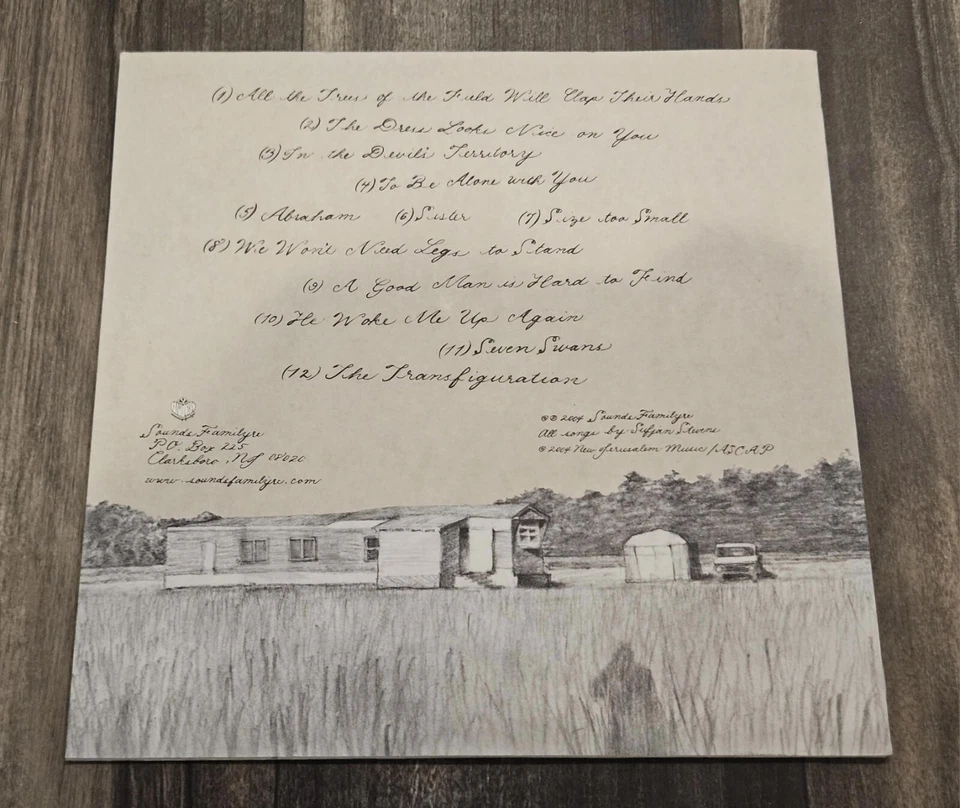 (1) All the Trees of the Field Will Clap Their Hands
(2) The Dress Looks Nice on You
(3) In the Devil's Territory
(4) To Be Alone with You
(5) Abraham (6) Sister (7) Size too Small
(8) We Won't Need Legs to Stand
(9) A Good Man is Hard to Find
(10) He Woke Me Up Again
(11) Seven Swans
(12) The Transfiguration
Sounds Familyre
P.O. Box 225
Clarksboro, NJ 08020
www.soundsfamilyre.com
℗© 2004 Sounds Familyre
All songs by Sufjan Stevens
© 2004 New Jerusalem Music / ASCAP